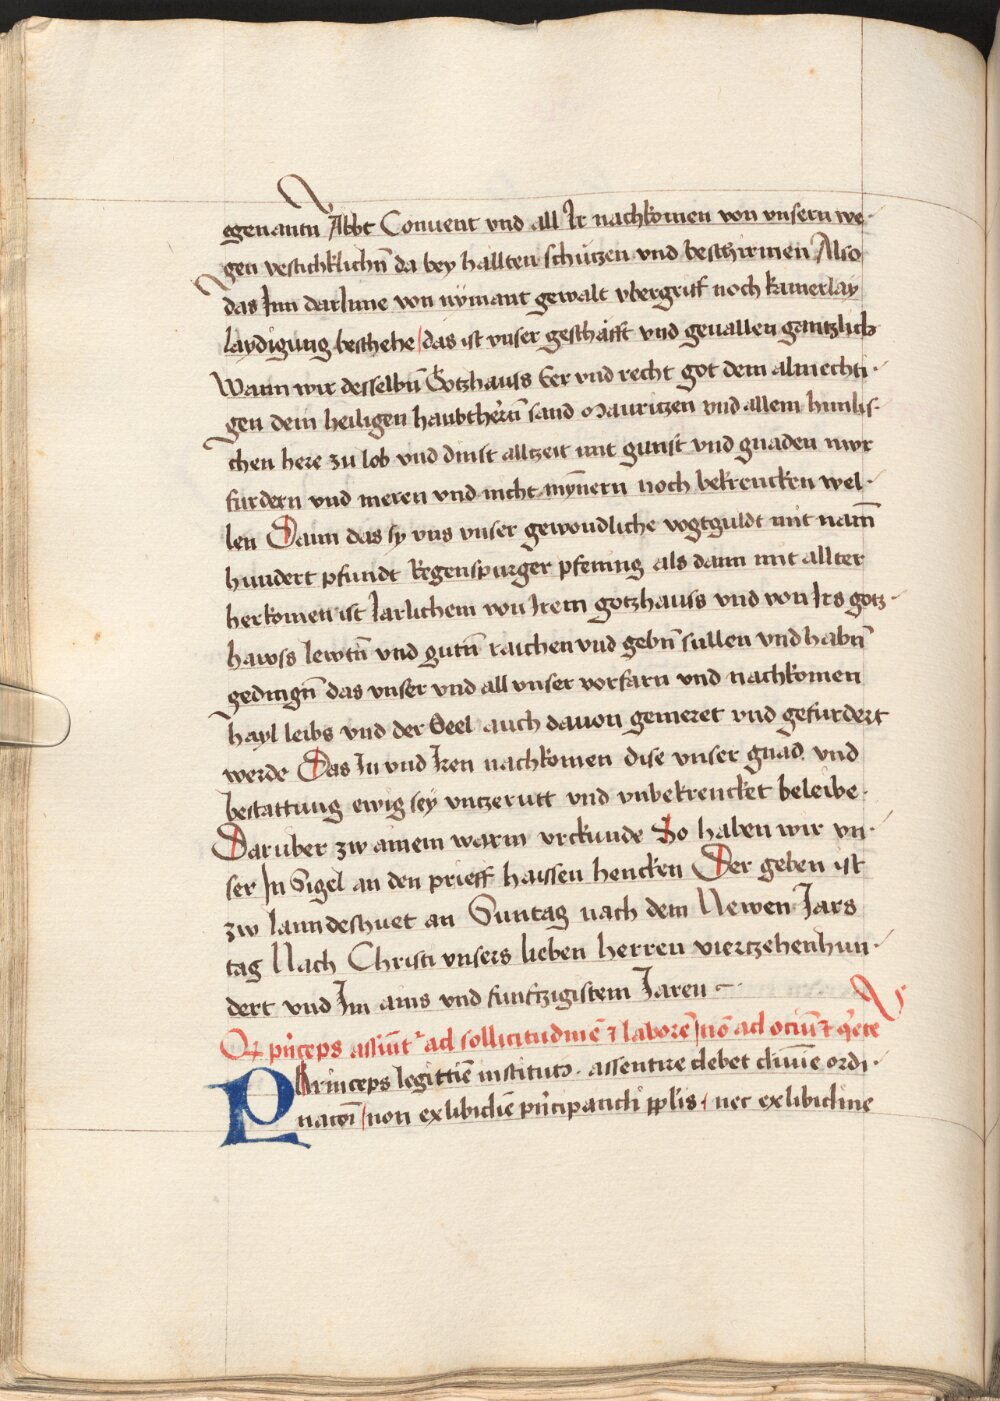 ggenantn̄ Abbt Conuent vnd all Ir nachkomen von vnsern we-
gen vestichklichn̄ da bey hallten schützen vnd beschirmen Also
das Inn darInne von nÿmant gewalt vbergriff noch kainerlay
laydigung beschehe / das ist vnser geschäfft vnd geuallen gantzlich
Wann wir desselbn̄ Gotzhauss Eer vnd recht got dem almechti-
gen dem heiligen haubtherrn̄ sand Mauritzen vnd allem himlis-
chen here zu lob vnd dinst alltzeit mit gunst vnd gnaden nwr
furdern vnd meren vnd nicht mÿnnern noch bekrencken wel-
len Dann das sy vns vnser gewondliche vogtguldt mit nam̄
hundert pfundt Regenspurger pfening als dann mit allter
herkomen ist Jarlichem von Irem gotzhauss vnd von Irs gotz-
hawss lewtn̄ vnd gutn̄ raichen vnd gebn̄ sullen vnd habn̄
gedingn̄ das vnser vnd all vnser vorfarn vnd nachkomen
hayl leibs vnd der Seel auch dauon gemeret vnd gefurdert
werde Das In vnd Iren nachkomen dise vnser gnad vnd
bestattung ewig sey vntzerutt vnd vnbekrencket beleibe.
Daruber zw ainem warm vrckunde So haben wir vn-
ser In Sigel an den prieff haissen hencken Der geben ist
zw lanndeshuet an Suntag nach dem Newen Jars
tag Nach Christi vnsers lieben herren viertzehenhun-
dert vnd Im ains vnd funftzigistem Jaren
Qꝫ pn̄ceps assūit᷑ ad sollicitudinē ⁊ laborē / nō ad ociū ⁊ q̄ete
Princeps legittiē institutꝰ. assentire debet diuīe ordi-
nacōi / non ex libidiē pn̄cipandi pp̄lis / nec ex libidine